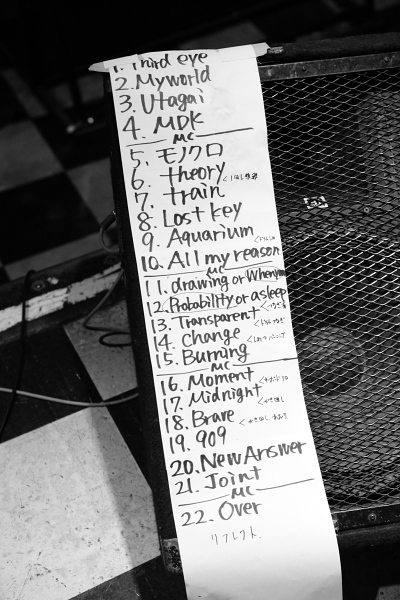 1. Third eye
2. My world
3. Utagai
4. MDK
MC
5. モノクロ
6. theory
7. train
8. Lost key
9. Aquarium
10. All my reason
MC
11. drawing or When
12. Probability or asleep
13. Transparent
14. Change
15. Burning
MC
16. Moment
17. Midnight
18. Brave
19. 909
20. New Answer
21. Joint
MC
22. Over
リフレクト